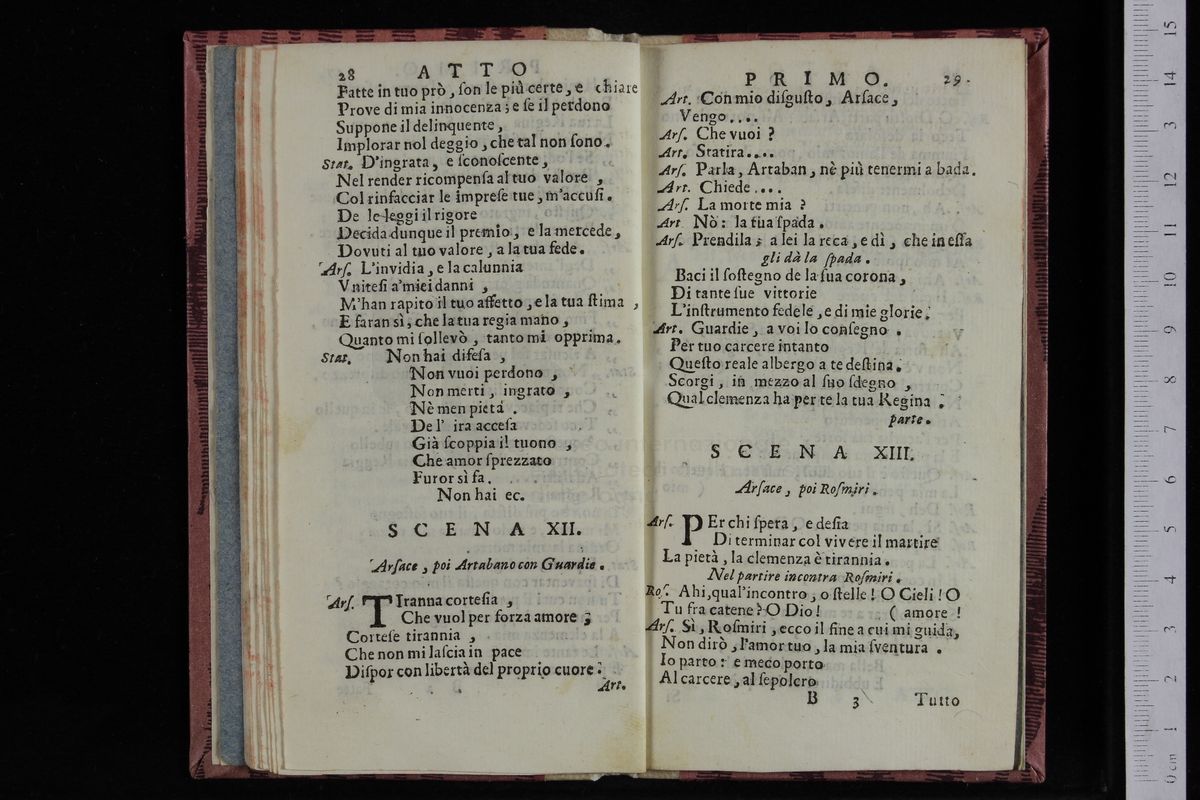 28 ATTO
Fatte in tuo prò, ſon le più certe, e chiare
Prove di mia innocenza; e ſe il perdono
Suppone il delinquente,
Implorar nol deggio, che tal non ſono.
Stat. D'ingrata, e ſconoſcente,
Nel render ricompenſa al tuo valore,
Col rinfacciar le impreſe tue, m'accuſi.
De le leggi il rigore
Decida dunque il premio, e la mercede,
Dovuti al tuo valore, a la tua fede.
Arſ. L'invidia, e la calunnia
Vniteſi a'miei danni,
M'han rapito il tuo affetto, e la tua ſtima,
E faran sì, che la tua regia mano,
Quanto mi ſollevò, tanto mi opprima.
Stat. Non hai difeſa,
Non vuoi perdono,
Non merti, ingrato,
Nè men pietà.
De l' ira acceſa
Già ſcoppia il tuono,
Che amor ſprezzato
Furor sì fa.
Non hai ec.
SCENA XII.
Arſace, poi Artabano con Guardie.
Arſ. TIranna corteſia,
Che vuol per forza amore;
Corteſe tirannia,
Che non mi laſcia in pace
Diſpor con libertà del proprio cuore.
Art.
PRIMO. 29.
Art. Con mio diſguſto, Arſace,
Vengo....
Arſ. Che vuoi?
Art. Statira....
Arſ. Parla, Artaban, nè più tenermi a bada.
Art. Chiede....
Arſ. La morte mia?
Art Nò: la tua ſpada.
Arſ. Prendila; a lei la reca, e dì, che in eſſa
gli dà la ſpada.
Baci il ſoſtegno de la ſua corona,
Di tante ſue vittorie
L'inſtrumento fedele, e di mie glorie.
Art. Guardie, a voi lo conſegno.
Per tuo carcere intanto
Queſto reale albergo a te deſtina.
Scorgi, in mezzo al ſuo ſdegno,
Qual clemenza ha per te la tua Regina.
parte.
SCENA XIII.
Arſace, poi Roſmiri.
Arſ. PEr chi ſpera, e deſia
Di terminar col vivere il martire
La pietà, la clemenza è tirannia.
Nel partire incontra Roſmiri.
Roſ. Ahi, qual'incontro, o ſtelle! O Cieli! O
Tu fra catene? O Dio! (amore!
Arſ. Sì, Roſmiri, ecco il fine a cui mi guida,
Non dirò, l'amor tuo, la mia ſventura.
Io parto: e meco porto
Al carcere, al ſepolcro
B 3 Tutto